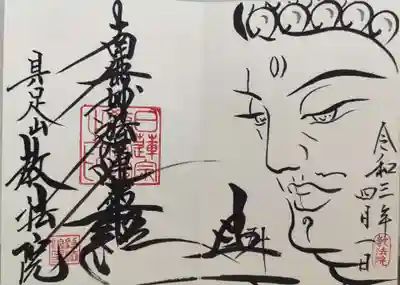 令和三年
四月一日
教法院
南無妙法蓮華経
日蓮宗
具足山
教法院